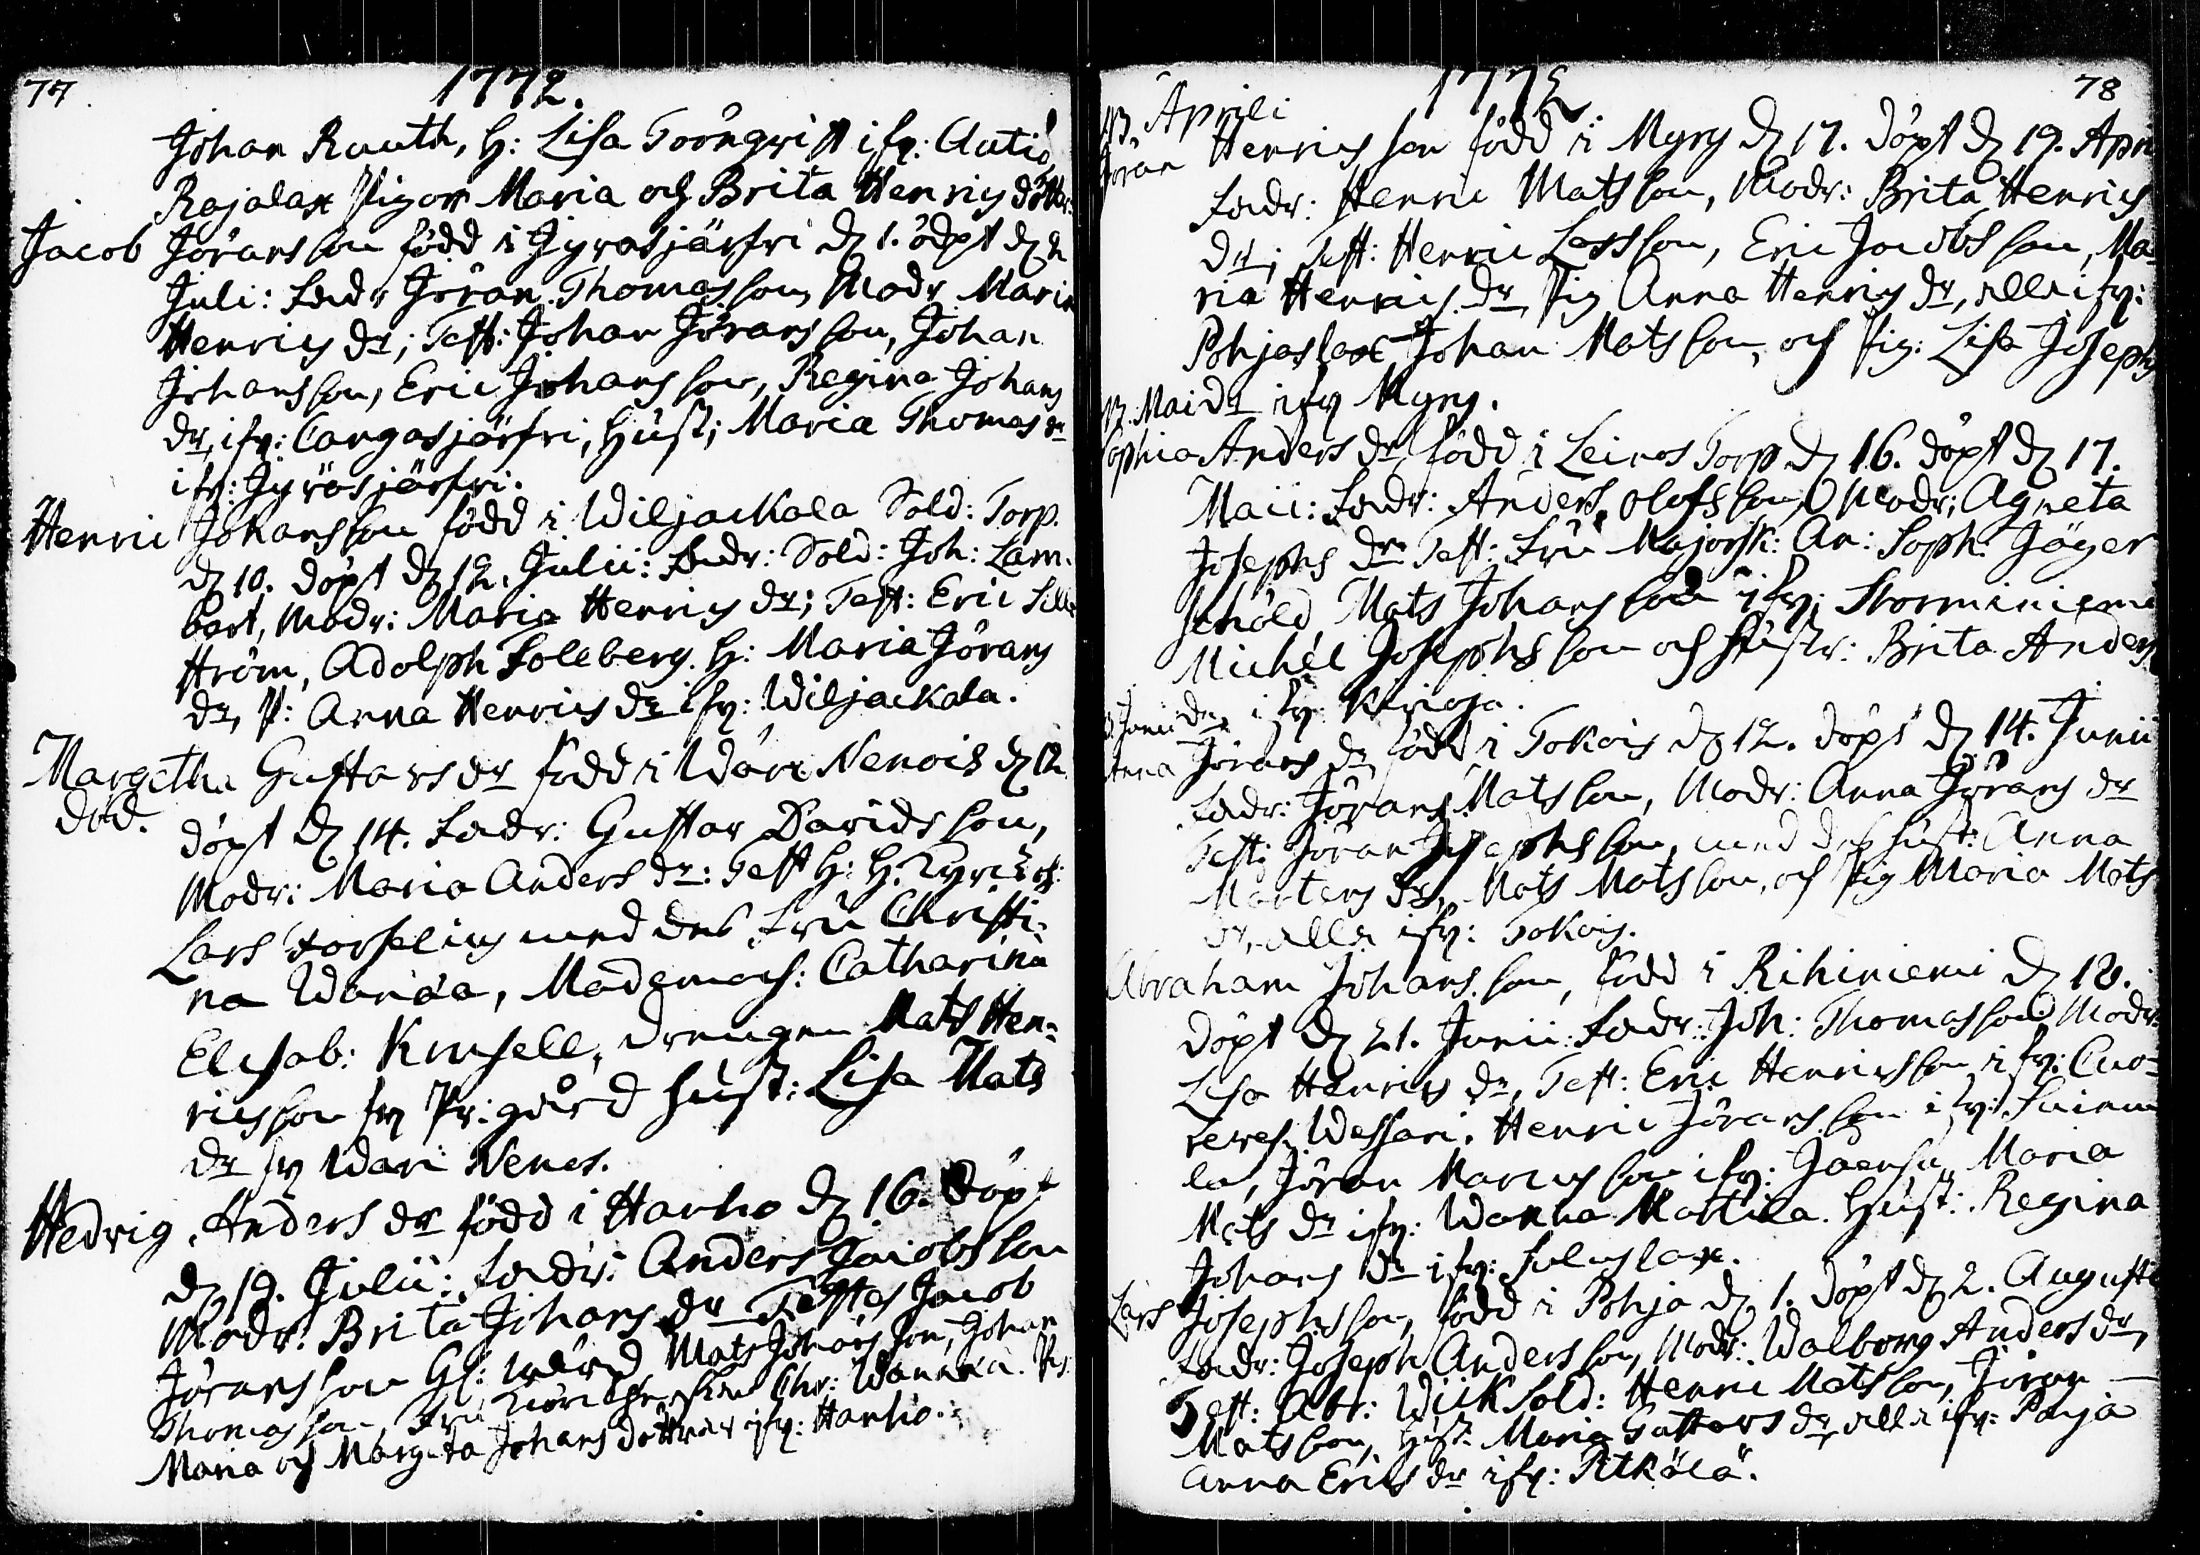 77
1772.
Johan Ruuth, H: Lisa Toorqvist ifr: Autio,
Rajalax Pigor Maria och Brita Henrics döttr.
Jacob Jöransson född i Jyräsjärfvi d. 1. döpt d. 2
Julii: Fadr Jöran Thomasson, Modr Maria
Henrics dr; Test: Johan Jöransson, Johan
Johansson, Eric Johansson, Regina Johans
dr, ifr: Cangasjärfvi, Hust; Maria Thomas dr
ifr: Jyräsjärfvi.
Henric Johansson född i Wiljackala Sold: Torp.
d. 10. döpt d. 12. Julii: Fadr: Sold: Joh: Lam-
bart, Modr: Maria Henrics dr; Test: Eric Sill-
ström, Adolph Soleberg. H: Maria Jörans
dr, P: Anna Henrics dr ifr: Wiljackala.
Margetha Gustavs dr född i Wari Nenois d. 12
död. döpt d. 14. Fadr: Gustav Davidsson,
Modr: Maria Anders dr: Test H: H.
Lars med des Fru Christi-
na Wanæa, Mademois: Catharina
Elisab: Kinsell, drengen Mats Hen-
ricsson fr Pr: gård Hust: Lisa Mats
dr fr Wari Nenes.
Hedvig Anders dr född i Hanho d. 16. Döpt
d. 19. Julii: Fadr: Anders Jacobsson
Modr: Brita Johans dr Testes Jacob
Jöransson Gl: wärd Mats Johansson, Johan
Thomasson, Fru Chr: Wanæa. P:
Maria och Margeta Johans döttrar ifr: Hanho.
78
1772
13. Aprili
Jöran Henricsson född i Myry d. 17. döpt d. 19. Apri
Fadr: Henric Matsson, Modr: Brita Henrics
dr; Test: Henric Larsson, Eric Jacobsson, Ma-
ria Henrics dr, Pig Anna Henrics dr, alla ifr:
Pohjaslax Johan Matsson, och Pig: Lisa Josephs
12. Mai dr ifr Myry.
Sophia Anders dr, född i Leinos Torp d. 16. döpt d. 17.
Maii: Fadr: Anders Olofsson, Modr: Agneta
Josephs dr. Test: Fru Majorsk: An: Soph: Jäger
schöld Mats Johansson ifr: Storminiemi
Michel Josephsson och Hustr: Brita Anders
3. Junii dr ifr Kirioja.
Anna Jörans dr född i Tokois d. 12. döpt d. 14. Junii
Fadr: Jörans Matsson, Modr: Anna Jörans dr
Test: Jöran Josephsson, med des hust: Anna
Mårtens dr, Mats Matsson, och Pig Maria Mats
dr, alla ifr: Tokois.
Abraham Johansson, född i Rihiniemi d. 18.
döpt d. 21. Junii: Fadr: Joh: Thomasson Modr
Lisa Henrics dr, Test: Eric Henricsson ifr: Cuo-
reves: Wessari. Henric Jöransson ifr:
la, Jöran Marcusson ifr: Jåensu, Maria
Mats dr ifr: Wanha Mattila. Hust: Regina
Johans dr ifr: Suluslax.
Lars Josephsson, född i Pohja d. 1. döpt d. 2. Augusti
Fadr: Joseph Andersson, Modr: Walborg Anders dr,
Test: Abr: Wiik Sold: Henric Matsson, Jöran
Matsson, Hust: Maria Gustavs dr, alla ifr: Pohja
Anna Erics dr ifr: Pitkälä.